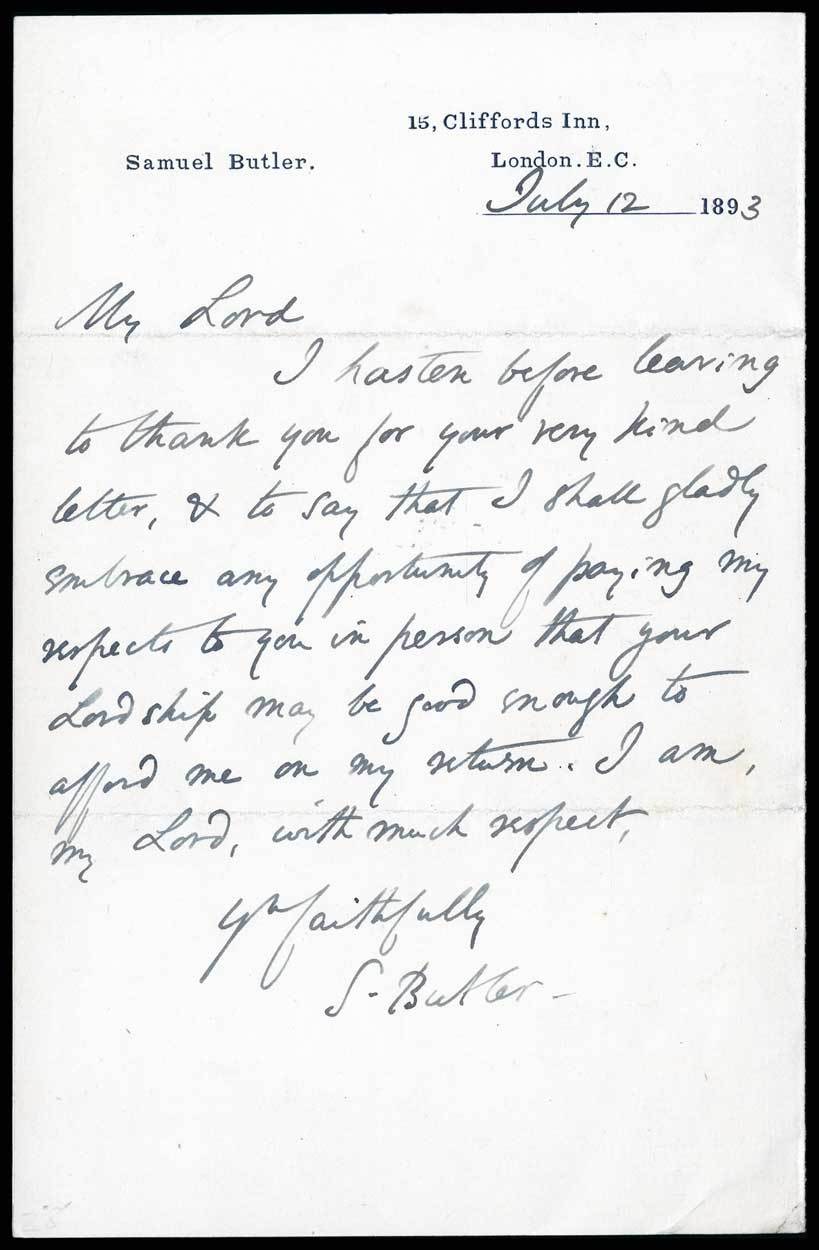 15, Cliffords Inn,
Samuel Butler. London. E.C.
July 12 1893
My Lord
I hasten before leaving
to thank you for your very kind
letter, & to say that I shall gladly
embrace any opportunity of paying my
respects to you in person that your
Lordship may be good enough to
afford me on my return. I am,
my Lord, with much respect,
Yrs faithfully
S. Butler -